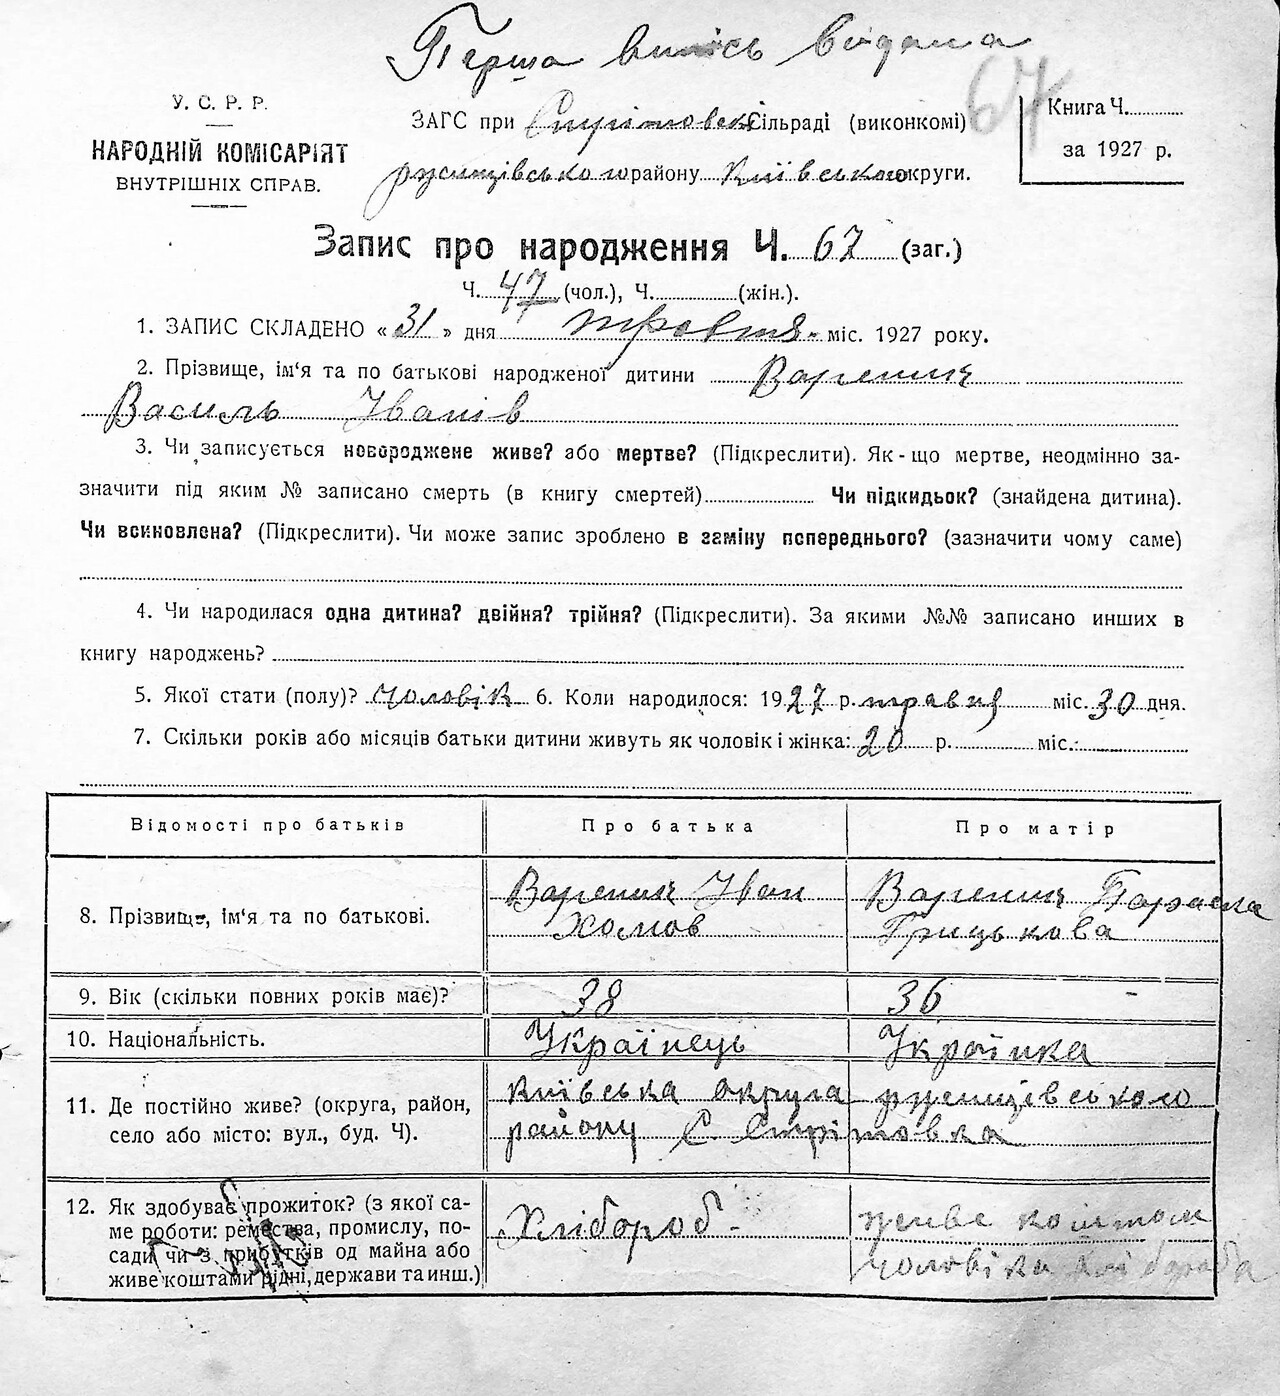 Перша випісь видана
67
У. С. Р. Р.
НАРОДНІЙ КОМІСАРІЯТ
ВНУТРІШНІХ СПРАВ.
ЗАГС при Стрітовск Сільраді (виконкомі)
ржищівського району Київського округи.
Книга Ч.
за 1927 р.
Запис про народження Ч. 67 (заг.)
Ч. 47 (чол.), Ч. (жін.).
1. ЗАПИС СКЛАДЕНО « 31 » дня травня міс. 1927 року.
2. Прізвище, ім‘я та по батькові народженої дитини Вареник
Василь Іванів
3. Чи записується новороджене живе? або мертве? (Підкреслити). Як-що мертве, неодмінно за-
значити під яким № записано смерть (в книгу смертей) Чи підкидьок? (знайдена дитина).
Чи всиновлена? (Підкреслити). Чи може запис зроблено в заміну попереднього? (зазначити чому саме)
4. Чи народилася одна дитина? двійня? трійня? (Підкреслити). За якими №№ записано инших в
книгу народжень?
5. Якої стати (полу)? чоловік 6. Коли народилося: 1927 р. травня міс. 30 дня.
7. Скільки років або місяців батьки дитини живуть як чоловік і жінка: 20 р. міс.
Відомості про батьків Про батька Про матір
8. Прізвище, ім‘я та по батькові. Вареник Іван Вареник Параска
Хомов Грицькова
9. Вік (скільки повних років має)? 38 36
10. Національність. Українець Українка
11. Де постійно живе? (округа, район, Київська округа ржищівського
село або місто: вул., буд. Ч). району С. Стрітовка
12. Як здобуває прожиток? (з якої са- Хлібороб живе коштом
ме роботи: ремества, промислу, по- чоловіка хлібороба
сади чи з прибутків од майна або
живе коштами рідні, держави та инш.)